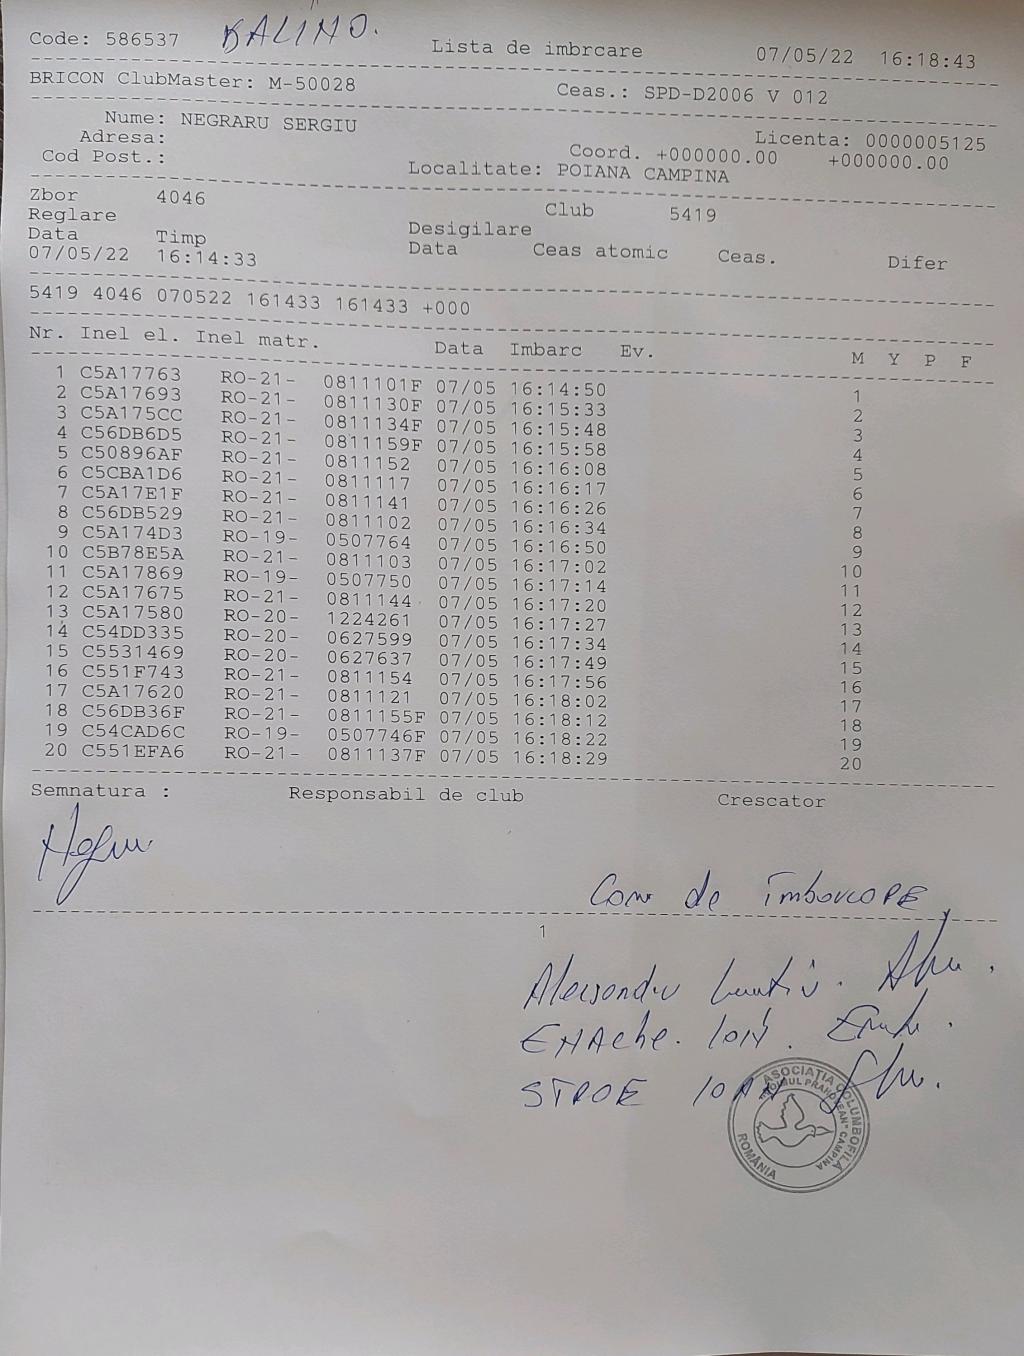 Code: 586537 BALINO. Lista de imbrcare 07/05/22 16:18:43
BRICON ClubMaster: M-50028 Ceas.: SPD-D2006 V 012
Nume: NEGRARU SERGIU Licenta: 0000005125
Adresa: Coord. +000000.00 +000000.00
Cod Post.: Localitate: POIANA CAMPINA
Zbor 4046 Club 5419
Reglare Desigilare
Data Timp Data Ceas atomic Ceas. Difer
07/05/22 16:14:33
5419 4046 070522 161433 161433 +000
Nr. Inel el. Inel matr. Data Imbarc Ev. M Y P F
1 C5A17763 RO-21- 0811101F 07/05 16:14:50 1
2 C5A17693 RO-21- 0811130F 07/05 16:15:33 2
3 C5A175CC RO-21- 0811134F 07/05 16:15:48 3
4 C56DB6D5 RO-21- 0811159F 07/05 16:15:58 4
5 C50896AF RO-21- 0811152 07/05 16:16:08 5
6 C5CBA1D6 RO-21- 0811117 07/05 16:16:17 6
7 C5A17E1F RO-21- 0811141 07/05 16:16:26 7
8 C56DB529 RO-21- 0811102 07/05 16:16:34 8
9 C5A174D3 RO-19- 0507764 07/05 16:16:50 9
10 C5B78E5A RO-21- 0811103 07/05 16:17:02 10
11 C5A17869 RO-19- 0507750 07/05 16:17:14 11
12 C5A17675 RO-21- 0811144 07/05 16:17:20 12
13 C5A17580 RO-20- 1224261 07/05 16:17:27 13
14 C54DD335 RO-20- 0627599 07/05 16:17:34 14
15 C5531469 RO-20- 0627637 07/05 16:17:49 15
16 C551F743 RO-21- 0811154 07/05 16:17:56 16
17 C5A17620 RO-21- 0811121 07/05 16:18:02 17
18 C56DB36F RO-21- 0811155F 07/05 16:18:12 18
19 C54CAD6C RO-19- 0507746F 07/05 16:18:22 19
20 C551EFA6 RO-21- 0811137F 07/05 16:18:29 20
Semnatura : Responsabil de club Crescator
de
1
ENAche.
STROE IOAN
ASOCIATIA COLUMBOFILĂ
"ȘOIMUL PRAHOVEAN" CAMPINA
ROMÂNIA